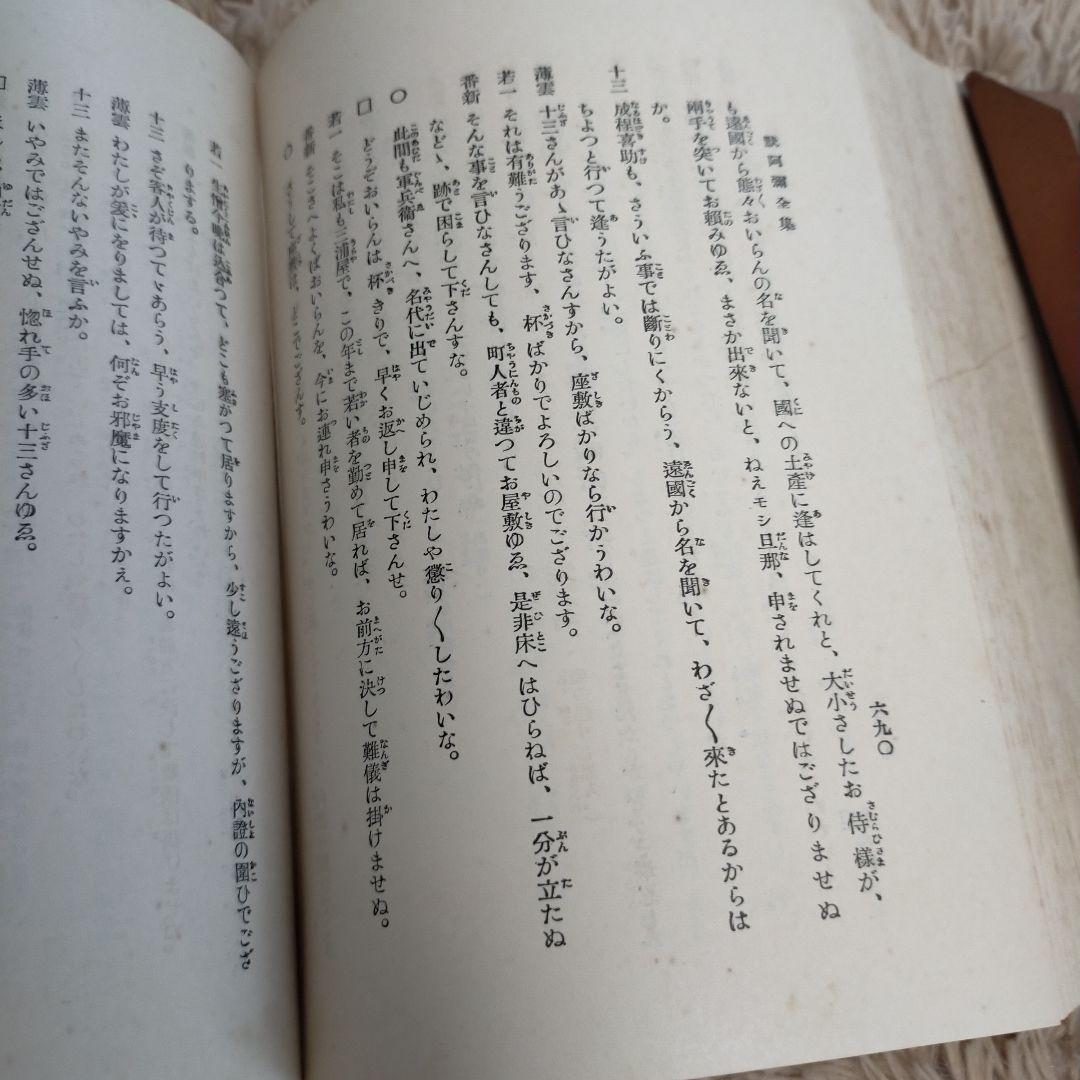 默阿彌全集
六九〇
も遠國から態々おいらんの名を聞いて、國への土產に逢はしてくれと、大小さしたお侍樣が、
兩手を突いてお賴みゆゑ、まさか出來ないと、ねえモシ旦那、申されませぬではござりませぬ
か。
十三 成程喜助も、さういふ事では斷りにくからう、遠國から名を聞いて、わざ〱來たとあるからは
ちよつと行つて逢うたがよい。
薄雲 十三さんがあゝ言ひなさんすから、座敷ばかりなら行かうわいな。
若一 それは有難うござります、杯ばかりでよろしいのでござります。
番新 そんな事を言ひなさんしても、町人者と違つてお屋敷ゆゑ、是非床へはひらねば、一分が立たぬ
などゝ、跡で困らして下さんすな。
〇 此間も軍兵衞さんへ、名代に出ていぢめられ、わたしや懲り〱したわいな。
□ どうぞおいらんは杯きりで、早くお返し申して下さんせ。
若一 そこは私も三浦屋で、この年まで若い者を勤めて居れば、お前方に決して難儀は掛けませぬ。
番新 そこさへよくばおいらんを、今にお連れ申さうわいな。
〇 さうして座敷は、どこでござんす。
若一 生憎今晚は
つて、どこも塞がつて居りますから、少し遠うござりますが、內證の圍ひでござ
りまする。
十三 さぞ客人が待つてゞあらう、早う支度をして行つたがよい。
薄雲 わたしが爰にをりましては、何ぞお邪魔になりますかえ。
十三 またそんないやみを言ふか。
薄雲 いやみではござんせぬ、惚れ手の多い十三さんゆゑ。
□